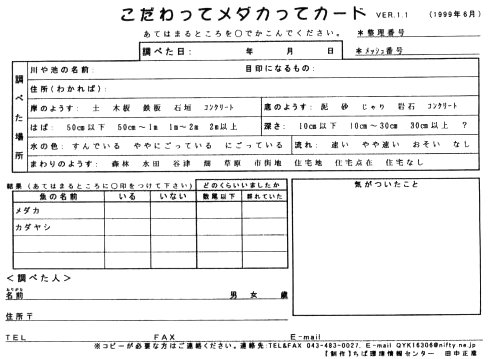 こだわってメダカってカード VER.1.1 (1999年6月)
あてはまるところを○でかこんでください。 *整理番号
調べた日: 年 月 日 *メッシュ番号
調べた場所
川や池の名前: 目印になるもの:
住所(わかれば):
岸のようす: 土 木板 鉄板 石垣 コンクリート 底のようす: 泥 砂 じゃり 岩石 コンクリート
はば: 50cm以下 50cm〜1m 1m〜2m 2m以上 深さ: 10cm以下 10cm〜30cm 30cm以上 ?
水の色: すんでいる ややにごっている にごっている 流れ: 速い やや速い おそい なし
まわりのようす: 森林 水田 谷津 畑 草原 市街地 住宅地 住宅点在 住宅なし
結果 (あてはまるところに○印をつけて下さい) どのくらいいましたか 気がついたこと
魚の名前 いる いない 数尾以下 群れていた
メダカ
カダヤシ
<調べた人>
ありがな
名前 男 女 歳
住所〒
TEL FAX E-mail
※コピーが必要な方はご連絡ください。連絡先:TEL&FAX 043-483-0027, E-mail QYK16306@nifty.ne.jp
【制作】ちば環境情報センター 田中正彦